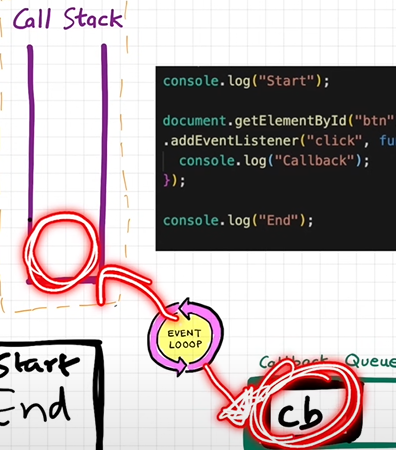 Call Stack
console.log("Start");
document.getElementById("btn"
.addEventListener("click", fu
console.log("Callback");
});
console.log("End");
EVENT
LOOOP
Callback Queue
cb
Start
End